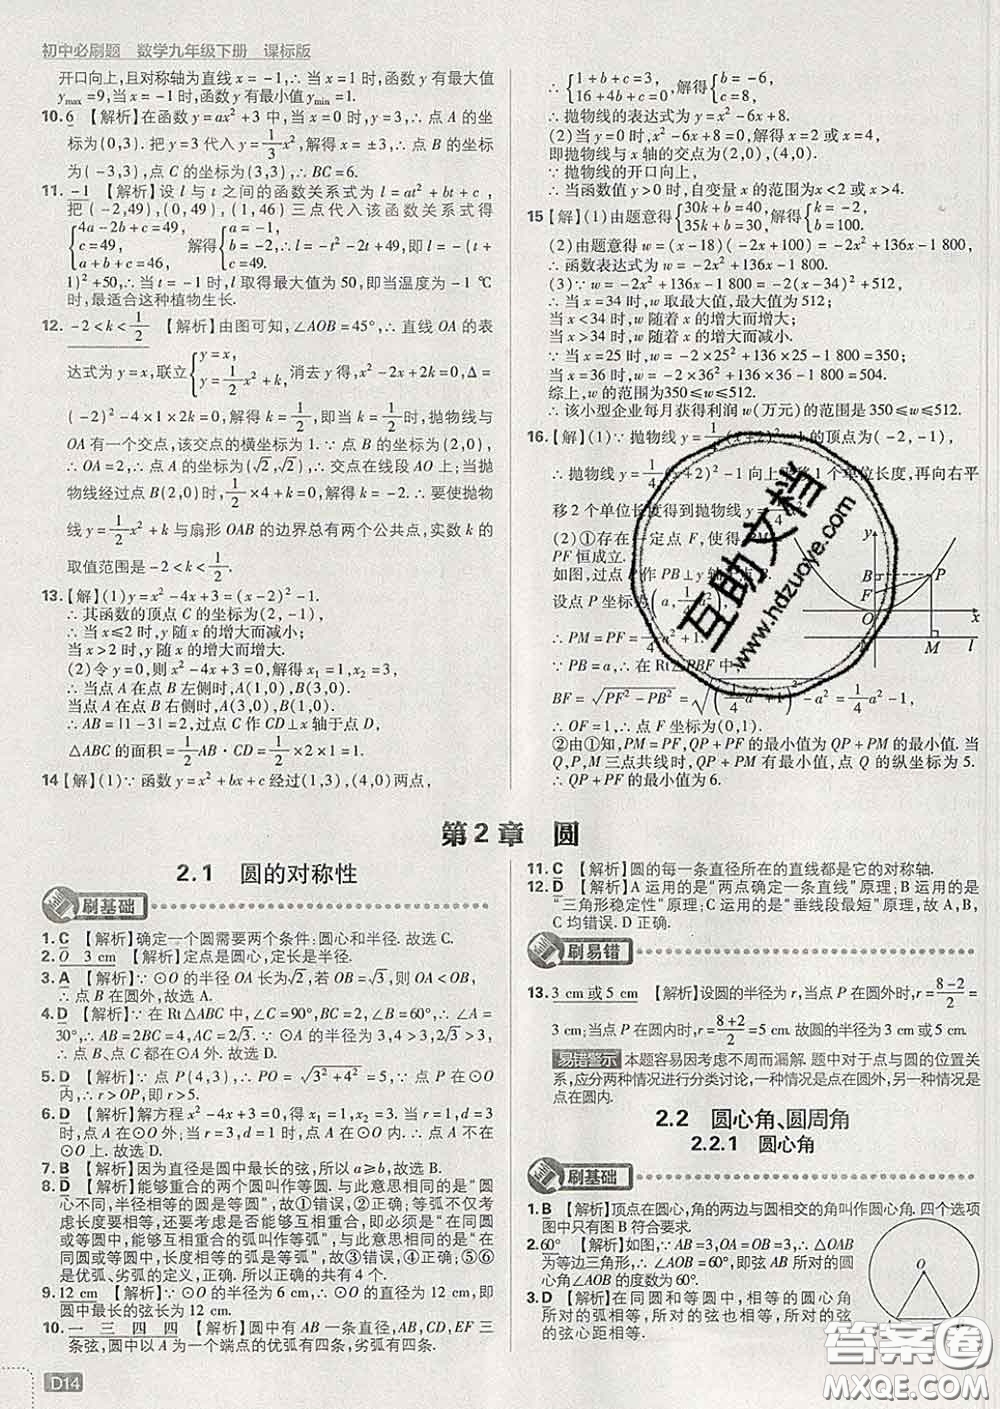 初中必刷题 数学九年级下册 课标版
开口向上,且对称轴为直线 x = -1,∴ 当 x = 1 时,函数 y 有最大值
y max = 9,当 x = -1 时,函数 y 有最小值 y min = 1.
10. 6 【解析】在函数 y = ax² + 3 中,当 x = 0 时,y = 3,∴ 点 A 的坐
标为(0,3). 把 y = 3 代入 y = 1/3 x²,解得 x = ±3,∴ 点 B 的坐标
为(-3,3),点 C 的坐标为(3,3),∴ BC = 6.
11. -1 【解析】设 l 与 t 之间的函数关系式为 l = at² + bt + c,
把(-2,49),(0,49),(1,46)三点代入该函数关系式得
{4a - 2b + c = 49, c = 49, a + b + c = 46, 解得 {a = -1, b = -2, c = 49, ∴ l = -t² - 2t + 49,即 l = -(t +
1)² + 50,∴ 当 t = -1 时,l 取得最大值为 50,即当温度为 -1 ℃
时,最适合这种植物生长.
12. -2 < k < 1/2 【解析】由图可知,∠AOB = 45°,∴ 直线 OA 的表
达式为 y = x,联立{y = x, y = 1/2 x² + k, 消去 y 得,x² - 2x + 2k = 0,Δ =
(-2)² - 4×1×2k = 0,解得 k = 1/2,即当 k = 1/2 时,抛物线与
OA 有一个交点,该交点的横坐标为 1. ∵ 点 B 的坐标为(2,0),
∴ OA = 2,∴ 点 A 的坐标为(√2,√2),∴ 交点在线段 AO 上;当抛
物线经过点 B(2,0)时,1/2 × 4 + k = 0,解得 k = -2. ∴ 要使抛物
线 y = 1/2 x² + k 与扇形 OAB 的边界总有两个公共点,实数 k 的
取值范围是 -2 < k < 1/2.
13.【解】(1)y = x² - 4x + 3 = (x - 2)² - 1.
∴ 其函数的顶点 C 的坐标为(2,-1),
∴ 当 x ≤ 2 时,y 随 x 的增大而减小;
当 x > 2 时,y 随 x 的增大而增大.
(2)令 y = 0,则 x² - 4x + 3 = 0,解得 x₁ = 1,x₂ = 3,
∴ 当点 A 在点 B 左侧时,A(1,0),B(3,0).
当点 A 在点 B 右侧时,A(3,0),B(1,0).
∴ AB = |1 - 3| = 2,过点 C 作 CD⊥x 轴于点 D,
△ABC 的面积 = 1/2 AB·CD = 1/2 × 2 × 1 = 1.
14【解】(1)∵ 函数 y = x² + bx + c 经过(1,3),(4,0)两点,
∴ {1 + b + c = 3, 16 + 4b + c = 0, 解得{b = -6, c = 8,
∴ 抛物线的表达式为 y = x² - 6x + 8.
(2)当 y = 0 时,x² - 6x + 8 = 0,解得 x₁ = 2,x₂ = 4,
即抛物线与 x 轴的交点为(2,0),(4,0).
∵ 抛物线的开口向上,
∴ 当函数值 y > 0 时,自变量 x 的范围为 x < 2 或 x > 4.
15【解】(1)由题意得{30k + b = 40, 35k + b = 30, 解得{k = -2, b = 100.
(2)由题意得 w = (x - 18)(-2x + 100) = -2x² + 136x - 1 800,
∴ 函数表达式为 w = -2x² + 136x - 1 800.
(3)∵ w = -2x² + 136x - 1 800 = -2(x - 34)² + 512,
∴ 当 x = 34 时,w 取最大值,最大值为 512;
当 x < 34 时,w 随着 x 的增大而增大;
当 x > 34 时,w 随着 x 的增大而减小.
∵ 当 x = 25 时,w = -2×25² + 136×25 - 1 800 = 350;
当 x = 36 时,w = -2×36² + 136×36 - 1 800 = 504.
综上,w 的范围为350 ≤ w ≤ 512.
∴ 该小型企业每月获得利润 w(万元)的范围是 350 ≤ w ≤ 512.
16.【解】(1)∵ 抛物线 y = 1/4 (x + 2)² - 1 的顶点为(-2,-1),
∴ 抛物线 y = 1/4 (x + 2)² - 1 向上平移 1 个单位长度,再向右平
移 2 个单位长度得到抛物线 y = 1/4
(2)①存在一定点 F,使得 PM
PF 恒成立.
如图,过点 P 作 PB⊥y 轴
设点 P 坐标为(a, 1/4
∴ PM = PF = 1/4 a² + 1.
∵ PB = a,∴ 在 Rt△PBF 中,
BF = √(PF² - PB²) = √((1/4 a² + 1)² - a²) = 1/4 a² - 1,
∴ OF = 1,∴ 点 F 坐标为(0,1).
②由①知,PM = PF,QP + PF 的最小值为 QP + PM 的最小值,当
Q,P,M 三点共线时,QP + PM 有最小值,∵ 点 Q 的纵坐标为 5.
∴ QP + PF 的最小值为 6.
y
B
P
F
O
x
M
l
第 2 章 圆
2.1 圆的对称性
刷基础
1. C 【解析】确定一个圆需要两个条件:圆心和半径. 故选 C.
2. O 3 cm 【解析】定点是圆心,定长是半径.
3. A 【解析】∵ ⊙O 的半径 OA 长为√2,若 OB = √3,∴ OA < OB,
∴ 点 B 在圆外,故选 A.
4. D 【解析】∵ 在 Rt△ABC 中,∠C = 90°,BC = 2,∠A =
30°,∴ AB = 2BC = 4,AC = 2√3. ∵ ⊙A 的半径为 3,4 > 3,2√3 >
3,∴ 点 B、点 C 都在⊙A 外. 故选 D.
5. D 【解析】∵ 点 P(4,3),∴ PO = √(3² + 4²) = 5. ∵ 点 P 在⊙O
内,∴ r > OP,即 r > 5.
6. D 【解析】解方程 x² - 4x + 3 = 0,得 x = 1 或 x = 3,当 r = 1,d = 3
时,点 P 在⊙O 外;当 r = 3,d = 1 时,点 P 在⊙O 内. 故选 D.
7. B 【解析】因为直径是圆中最长的弦,所以 a ≥ b,故选 B.
8. D 【解析】能够重合的两个圆叫作等圆. 与此意思相同的是“圆
心不同,半径相等的圆是等圆”,故①错误,②正确;等弧不仅考
虑长度要相等,还要考虑是否能够互相重合,即“在同圆
或等圆中,能够互相重合的弧叫作等弧”,与此意思相同的是“在
同圆或等圆中,长度相等的弧是等弧”,故③错误,④正确;⑤⑥
是优弧、劣弧的定义,正确. 所以正确的共有 4 个.
9. 12 cm 【解析】∵ ⊙O 的半径为 6 cm,∴ ⊙O 的直径为 12 cm,即
圆中最长的弦长为 12 cm.
10. 一 三 四 四 【解析】圆中有 AB 一条直径,AB,CD,EF 三
条弦,圆中以 A 为一个端点的优弧有四条,劣弧有四条.
11. C 【解析】圆的每一条直径所在的直线都是它的对称轴.
12. D 【解析】A 运用的是“两点确定一条直线”原理;B 运用的是
“三角形稳定性”原理;C 运用的是“垂线段最短”原理,故 A,B,
C 均错误. D 正确.
刷易错
13. 3 cm 或 5 cm 【解析】设圆的半径为 r,当点 P 在圆外时,r = (8 - 2)/2 =
3 cm;当点 P 在圆内时,r = (8 + 2)/2 = 5 cm. 故圆的半径为 3 cm 或 5 cm.
易错警示 本题容易因考虑不周而漏解. 题中对于点与圆的位置关
系,应分两种情况进行分类讨论,一种情况是点在圆外,另一种情况是
点在圆内.
2.2 圆心角、圆周角
2.2.1 圆心角
刷基础
1. B 【解析】顶点在圆心,角的两边与圆相交的角叫作圆心角. 四个选项
图中只有图 B 符合要求.
2. 60° 【解析】如图,∵ AB = 3,OA = OB = 3,∴ △OAB 为
等边三角形,∴ ∠AOB = 60°,即弦 AB 所对的圆
心角∠AOB 的度数为 60°.
3. D 【解析】在同圆和等圆中,相等的圆心角
所对的弧相等,所对的弦也相等,所对的弦
的弦心距相等.
O
D14
互助文档
www.hdzuoye.com
答案圈
MXQE.COM